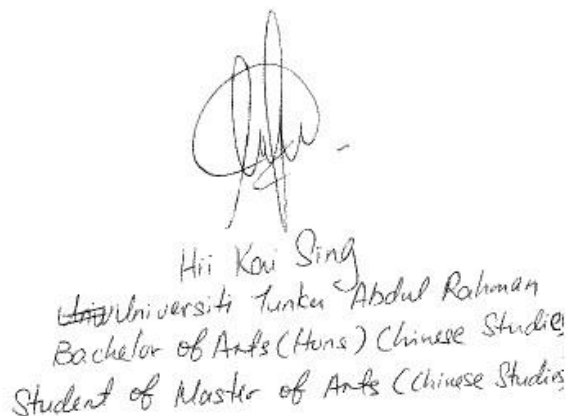 Hii Kai Sing
Universiti Tunku Abdul Rahman
Bachelor of Arts (Hons) Chinese Studies
Student of Master of Arts (Chinese Studies